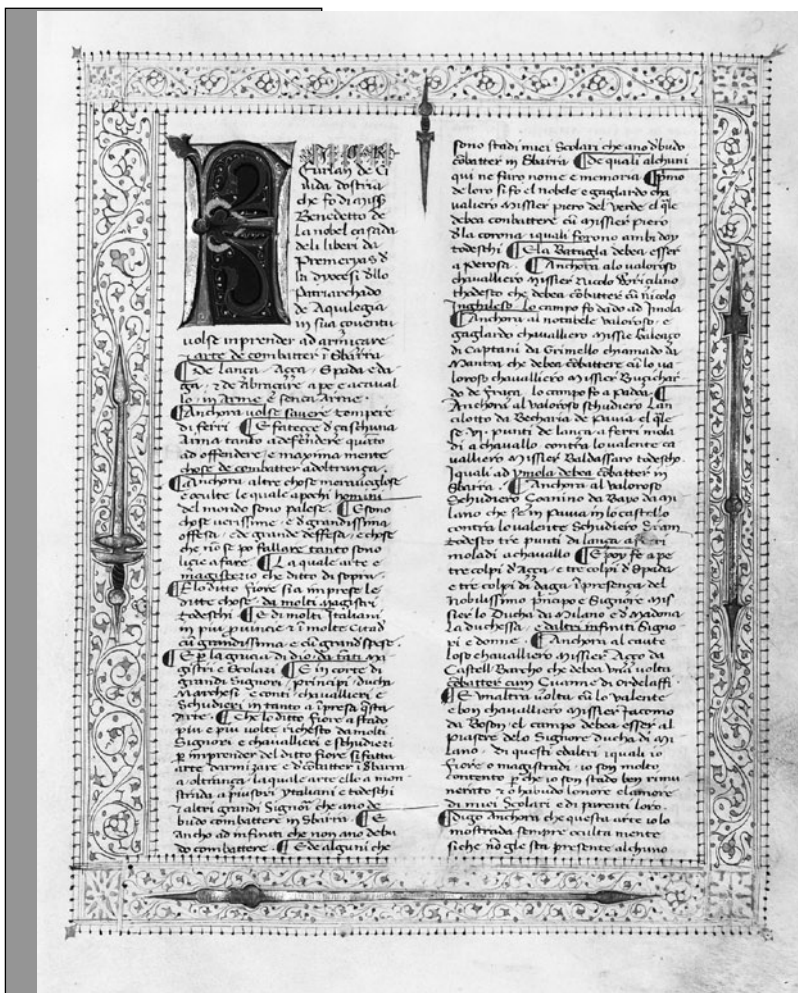 FIOR
Furlan de Ci
uida dostria
che fo di miss
Benedetto de
la nobel casada
deli liberi da
Premeryas d
la dyocesi dllo
Patriarchado
de Aquilegia
in sua couentu
volse imprender ad armiçare
 arte de combatter i Sbarra
¶De lança, Açça, Spada e da
ga, & de abraçare a pe e acaual
lo, in arme e sença Arme.
¶Anchora volse sauere tempere
di ferri ¶E fateçe d çaschuna
Arma tanto adefendere quāto
ad offendere, e maxima mente
chose de combatter adoltrança.
¶Anchora altre chose merauegliose
e oculte le quale apochi homini
del mondo sono palese. ¶E sono
chose uerissime, e d grandissima
offesa, e de grande deffesa, e chose
che nō se po fallare tanto sono
liçie a fare. ¶La quale arte e
magisterio che ditto di sopra.
¶E lo ditto Fiore sia imprese le
ditte chose, da molti magistri
todeschi ¶E di molti Italiani
in piu puincie & i molte Citad
cū grandissima e cū grand spese.
¶E p la gratia di dio, da tāti Ma
gistri e Scolari ¶E in corte di
grandi Signori, principi, duchi
Marchesi e conti, chauallieri e
Schudieri in tanto a ipresa qsta
Arte. ¶Che lo ditto Fiore a stado
piu e piu volte richesto da molti
Signori e chauallieri e schudieri
p imprender del ditto fiore sifatta
arte darmizare e d cōbatter i Sbarra
a oltrança, la quale arte ello a mon
strada a piusori ytaliani e todeschi
& altri grandi Signori che ano de
budo combattere in Sbarra. ¶E
ancho ad infiniti che non ano debu
do combattere. ¶E de alguni che
sono stadi miei Scolari che ano dbudo
cōbatter in Sbarra ¶De quali alchuni
qui ne farò nome e memoria ¶Cōmo
de loro si fo el nobele e gagliardo cha
valiero Missier piero del verde el qle
debea conbattere cū Missier piero
dla corona, iquali forono ambi doy
todeschi ¶E la Batagla debea esser
a perosa. ¶Anchora alo ualoroso
chavalliero Missier Nicolo Voriçilino
thodesco che debea cōbatter cū nicolo
Inghileso. Lo campo fo dado ad Imola
¶Anchora al notabele valoroso, e
gagliardo chavalliero Missier Galeaço
di Captani da Grimello chiamado da
Mantoa che debea cōbattere cū lo va
loroso chavalliero Missier Buçichar
do de Fraça, lo campo fo a padoa. ¶
Anchora al valoroso schudiero Lan
cilotto da Becharia de Pavia el qle
fe .vi. punti de lança a ferri mola
di a chavallo contra lo valente ca
valliero Missier Baldassaro todescho.
Iquali ad ymola debea cōbatter in
Sbarra. ¶Anchora al valoroso
Schudiero Çoanino da Bavo da mi
lano che fe in Pavia in lo castello
contra lo valente Schudiero Sram
todesco tre punti di lança a feri
moladi a chavallo ¶E poy fe a pe
tre colpi d'Açça e tre colpi d Spada
e tre colpi di daga i presença del
Nobilissimo principo e Signore Mis
sier lo Ducha da Milano e d madona
la duchessa, e daltri infiniti Signo
ri e donne. ¶Anchora al caute
loso chavalliero Missier Açço da
Castell Barcho che debea vna uolta
cōbatter cum Çuanne di Ordelaffi.
¶E vnaltra uolta cū lo valente
e bon chavalliero Missier Jacomo
da Boson, el campo debea esser al
piasere delo Signore ducha di mi
lano. di questi e daltri iquali io
fiore o magistradi, io son molto
contento p che io son stado ben rimu
nerato & o habudo lonore e lamore
di miei Scolari e di parenti loro.
¶digo anchora che questa arte io lo
mostrada sempre oculta mente
siche nō gle sta presente alchuno